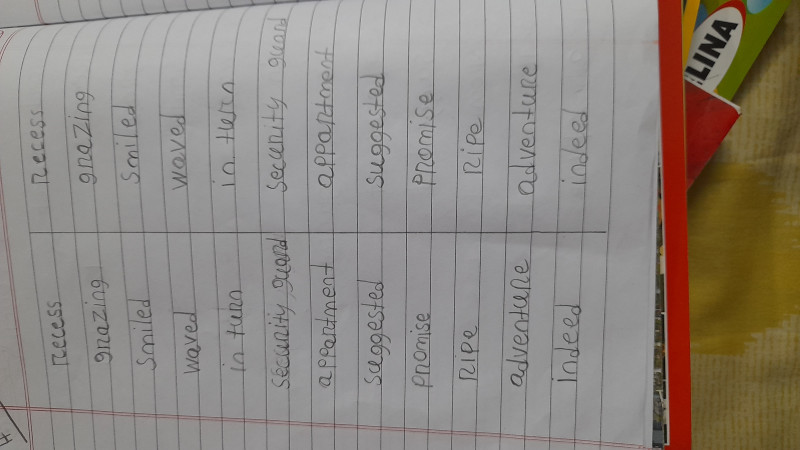 recess recess
grazing grazing
smiled smiled
waved waved
in turn in turn
security guard security guard
appartment appartment
suggested suggested
promise promise
ripe ripe
adventure adventure
indeed indeed
LINA